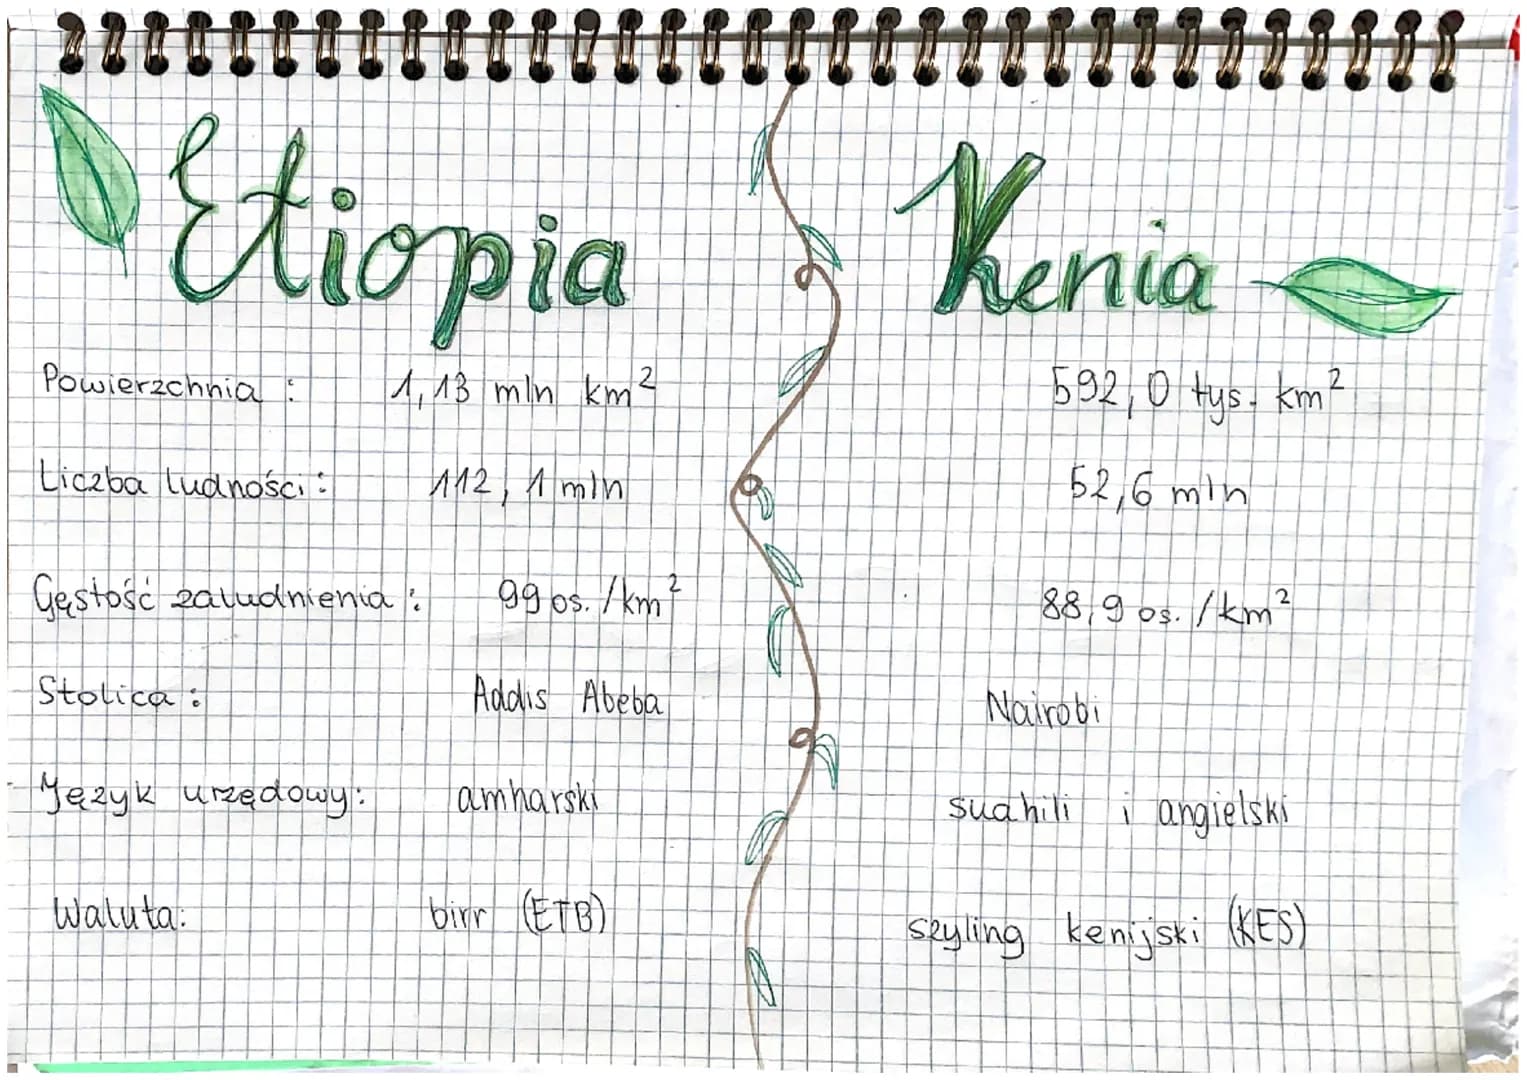 Etiopia Kenia
Powierzchnia : 1,13 mln km² 592,0 tys. km²
Liczba ludności : 112,1 mln 52,6 mln
Gęstość zaludnienia : 99 os. /km² 88,9 os. /km²
Stolica : Addis Abeba Nairobi
Język urzędowy: amharski suahili i angielski
Waluta: birr (ETB) szyling kenijski (KES)